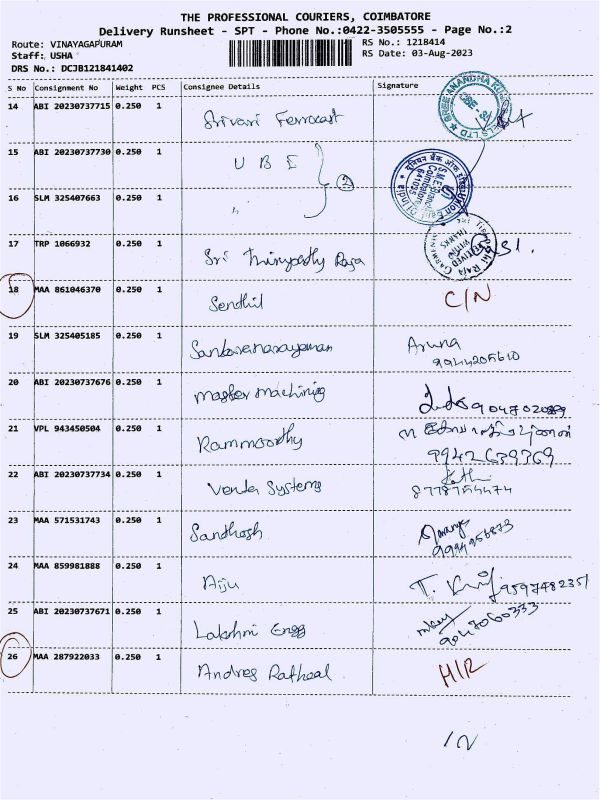 THE PROFESSIONAL COURIERS, COIMBATORE
Delivery Runsheet - SPT - Phone No.:0422-3505555 - Page No.:2
Route: VINAYAGAPURAM RS No.: 1218414
Staff: USHA RS Date: 03-Aug-2023
DRS No.: DCJB121841402
S No Consignment No Weight PCS Consignee Details Signature
14 ABI 20230737715 0.250 1 Srivari Ferrocast
15 ABI 20230737730 0.250 1 U B I
16 SLM 325407663 0.250 1 " 2
17 TRP 1066932 0.250 1 Sri Thirupathy Raja
18 MAA 861046370 0.250 1 Senthil C/N
19 SLM 325405185 0.250 1 Sankaranarayanan Aruna
9944205610
20 ABI 20230737676 0.250 1 Master machining
21 VPL 943450504 0.250 1 Rammoorthy
9942639369
22 ABI 20230737734 0.250 1 Venda Systems
8778754474
23 MAA 571531743 0.250 1 Santhosh
9994956873
24 MAA 859981888 0.250 1 Aiju 9597482351
25 ABI 20230737671 0.250 1 Lakshmi Engg
9047060333
26 MAA 287922033 0.250 1 Andres Ratheal